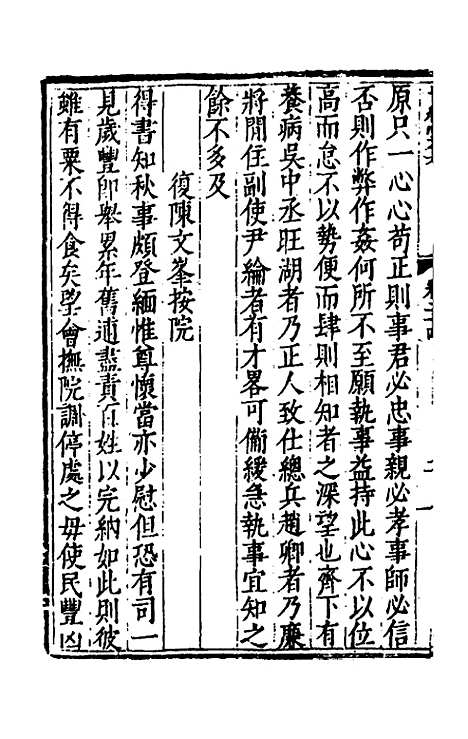 原只一心心苟正則事君必忠事親必孝事師必信
否則作弊作姦何所不至願執事益持此心不以位
高而怠不以勢便而肆則相知者之深望也齊下有
養病吳中丞旺湖者乃正人致仕總兵趙卿者乃廉
將閒住副使尹綸者有才畧可備緩急執事宜知之
餘不多及
復陳文峯按院
得書知秋事頗登緬惟尊懷當亦少慰但恐有司一
見歲豐即舉累年舊逋盡責百姓以完納如此則彼
雖有粟不得食矣望會撫院調停處之毋使民豐凶